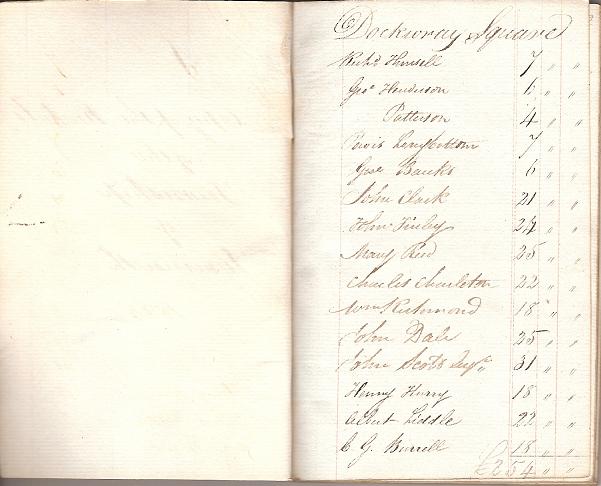 Dockwray Square
Richd Hansell 7 " "
Geoe Henderson 6 " "
Patterson 4 " "
Longbottom 7 " "
Geoe Banks 6 " "
John Clark 21 " "
John Finley 24 " "
Mary Reed 25 " "
Charles Charleton 22 " "
Wm Richmond 18 " "
John Dale 25 " "
John Scott 31 " "
Henry Harry 18 " "
Albert Liddle 22 " "
C G Burrell 18 " "
£254 " "